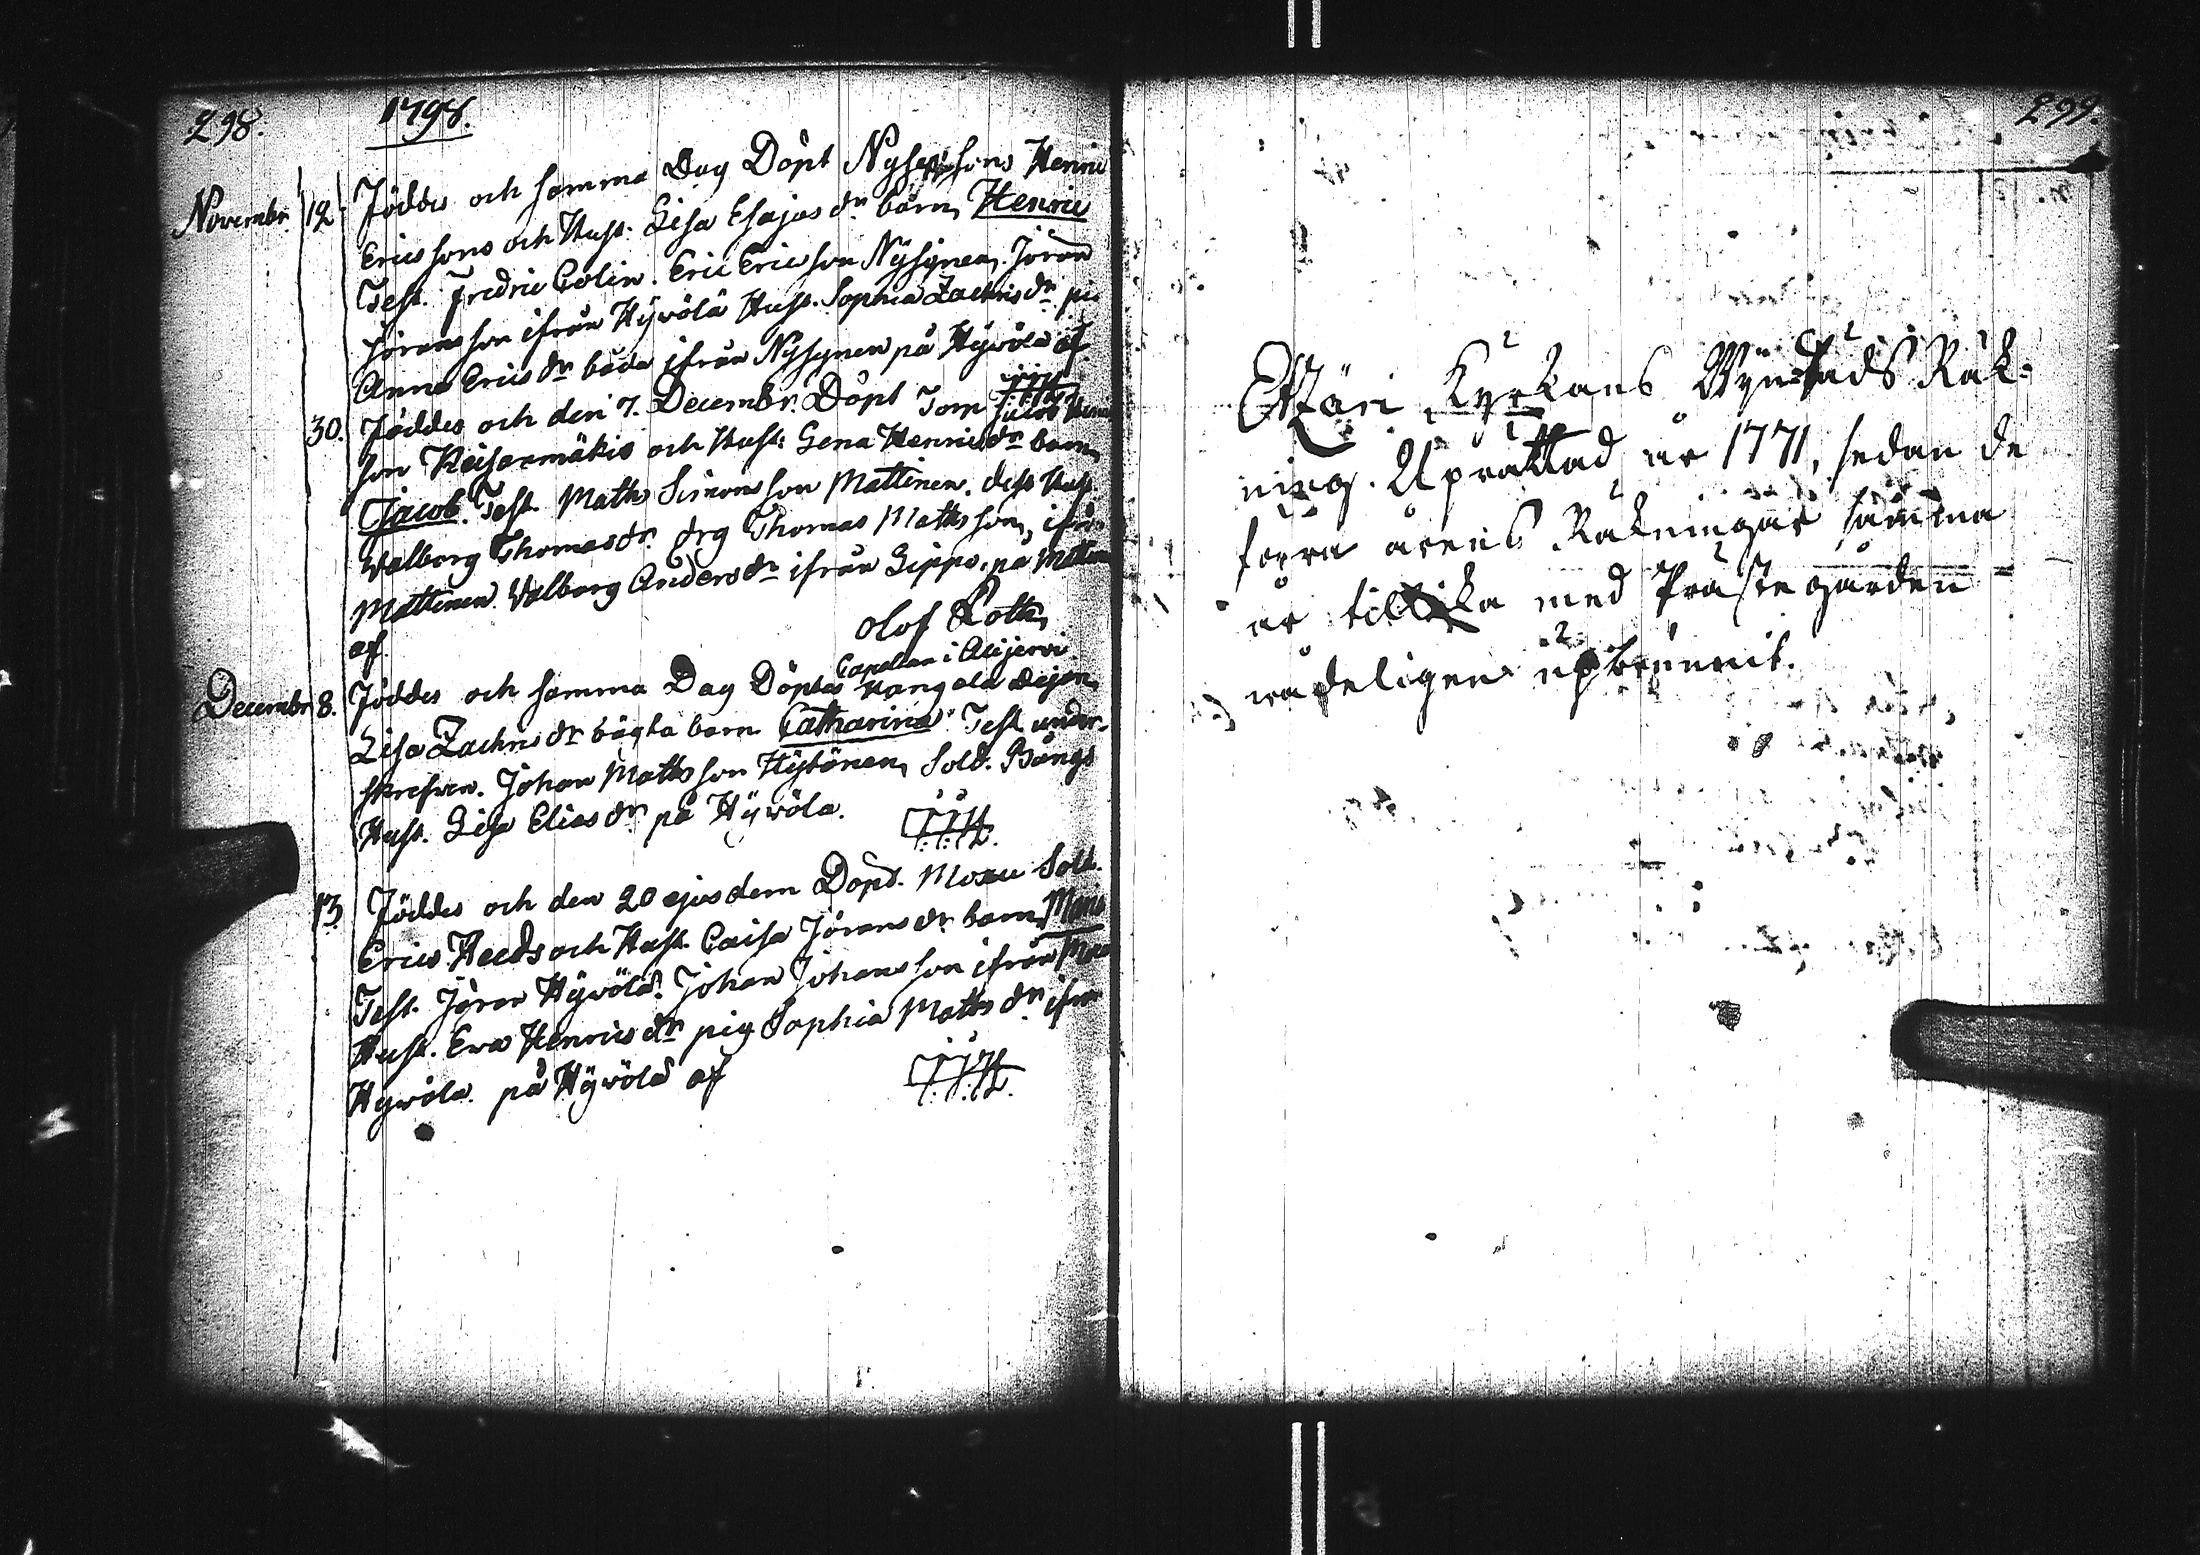 298.
1798.
Novembr. 12. Föddes och samma Dag Döpt Henric
Ericssons och Hust. Lisa Esajas dr barn, Henric
Test. Fredric Colin. Eric Ericsson Nysynen. Jöran
Jöransson ifrån Hywölä Hust. Sophia Zachris dr. pig
Anna Erics dr båda ifrån Nysynen på Hywölä af
30. Föddes och den 7. Decembr. Döpt Torp Jacob
son Keisarmäkis och Hust: Lena Henrics dr barn,
Jacob. Test. Matts Simonsson Mattinen. dess Hust
Walborg Thomas dr. drg Thomas Mattsson, ifrån
Mattinen. Walborg Anders dr ifrån Lippo. på
af. Olof Roth,
Capellan i Alijerwi
Decembr. 8. Föddes och samma Dag Döptes Kangola
Lisa Zachris dr oägta barn Catharina. Test. under-
skrefwen. Johan Mattsson Hytönen, Sold. Bångs
Hust. Lisa Elias dr på Hywölä.
13. Föddes och den 20 ejusdem Döpt. Sold.
Erics Heeds och Hust. Caisa Jörans dr barn,
Test. Jöran Hywölä. Johan Johansson ifrån
Hust. Ewa Henrics dr pig Sophia Matts dr ifrån
Hywölä. på Hywölä af
299.
Etzäri Kyrkans Räk-
ning. Uprättad år 1771, sedan de
förra årens Räkningar samma
år tillika med Prästegården
wådeligen upbrunnit.